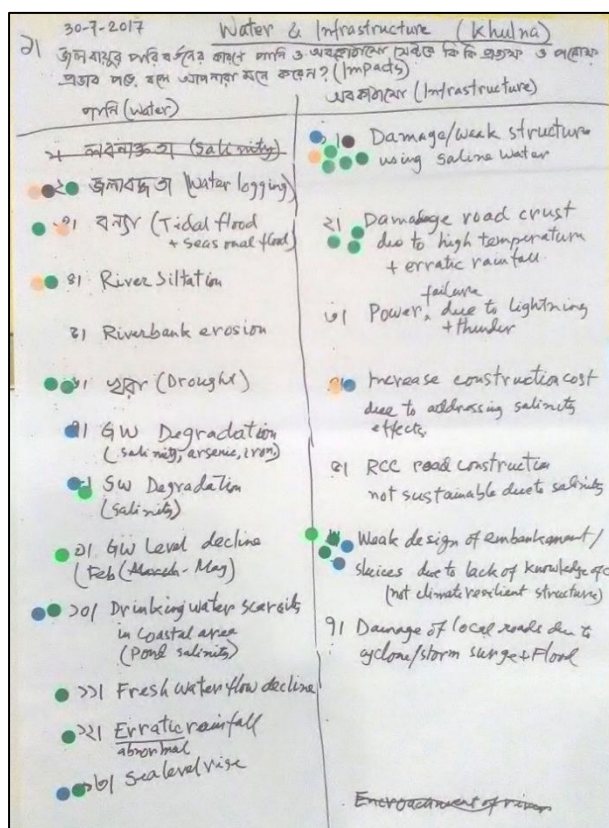 30-7-2017 Water & Infrastructure (Khulna)
১। জলবায়ুর পরিবর্তনের কারণে পানি ও অবকাঠামো সেক্টরে কি কি প্রত্যক্ষ ও পরোক্ষ
প্রভাব পড়ে বলে আপনারা মনে করেন? (Impacts)
পানি (Water)
১। লবনাক্ততা (Salinity)
২। জলাবদ্ধতা (Water logging)
৩। বন্যা (Tidal flood
+ seasonal flood)
৪। River Siltation
৫। Riverbank erosion
৬। খরা (Drought)
৭। GW Degradation
(salinity, arsenic, iron)
৮। SW Degradation
(salinity)
৯। GW Level decline
(Feb (March - May)
১০। Drinking water scarcity
in coastal area
(Pond salinity)
১১। Fresh water flow decline
১২। Erratic rainfall
abnormal
১৩। Sea level rise
অবকাঠামো (Infrastructure)
১। Damage/weak structure
using saline water
২। Damage road crust
due to high temperature
+ erratic rainfall
৩। Power failure due to lightning
+ thunder
৪। Increase construction cost
due to addressing salinity
effects,
৫। RCC road construction
not sustainable due to salinity
৬। Weak design of embankment/
sluices due to lack of knowledge of
(not climate resilient structure)
৭। Damage of local roads due to
cyclone/storm surge + Flood
Encroachment of river